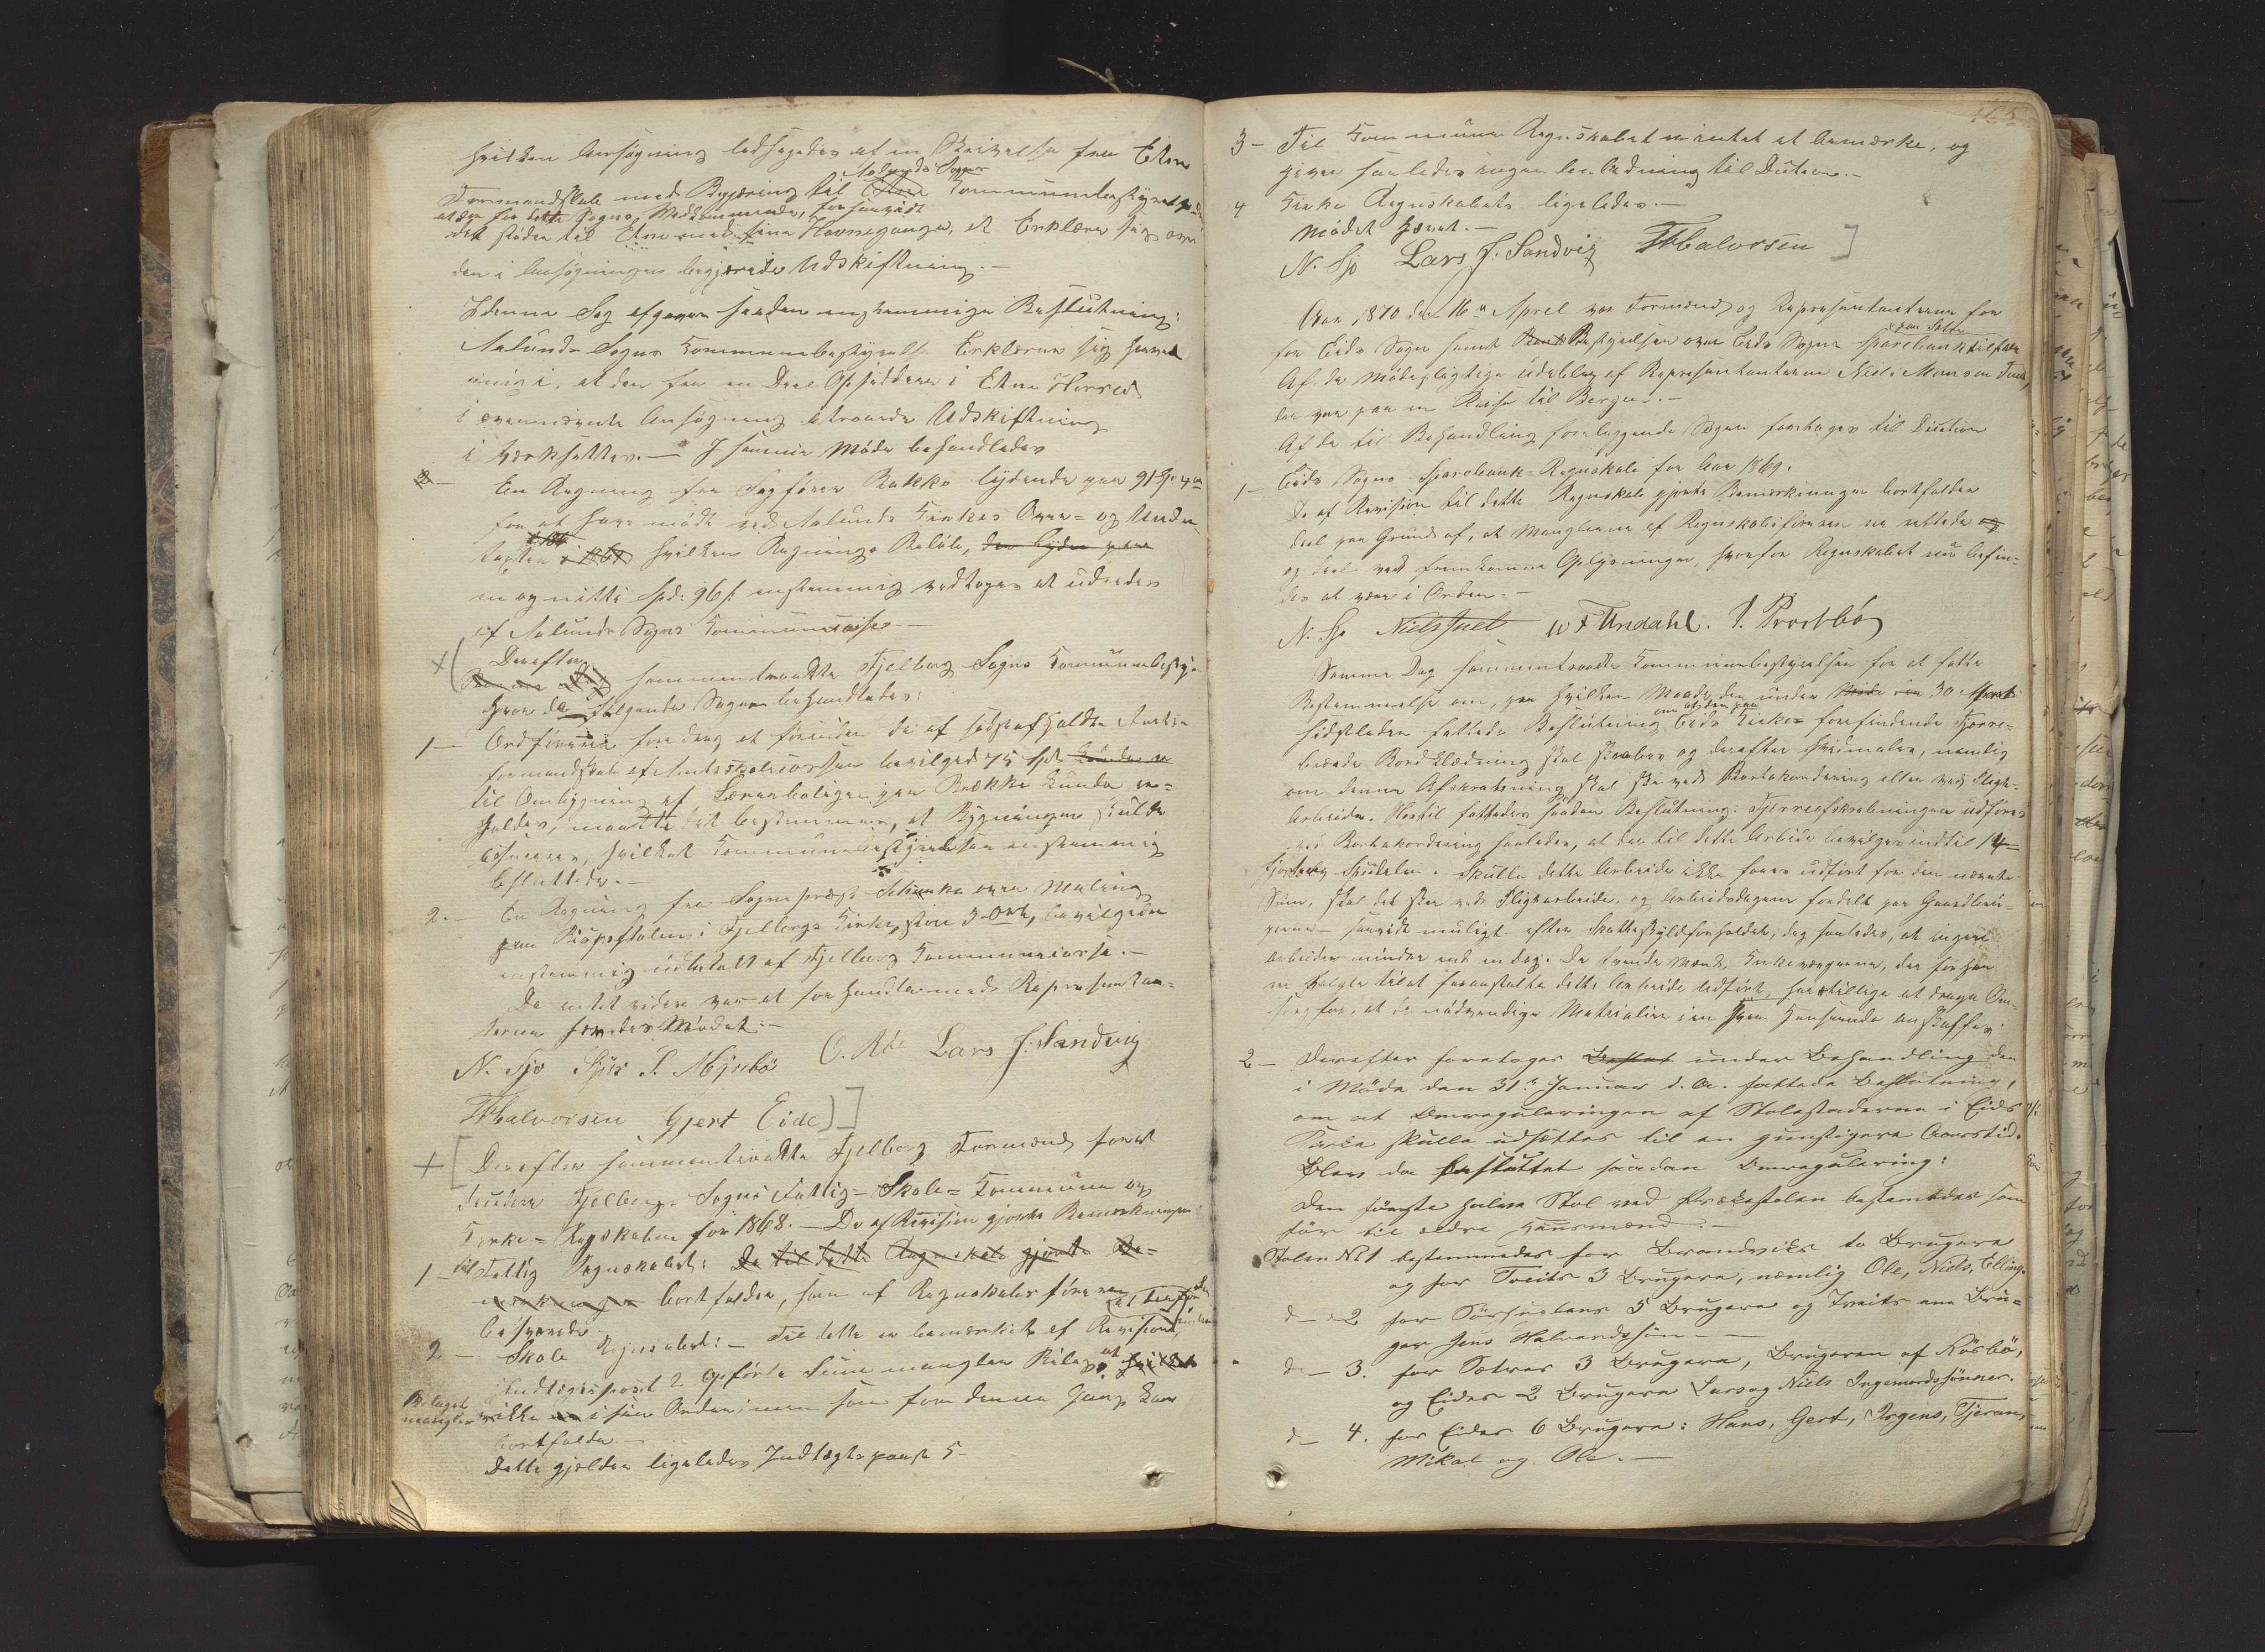 hvilken Ansøgning ledsagedes af en Skrivelse fra Etne
Formandskab med Begjæring til Ølens Kommunebestyrelse
Aalunds Sogns
at den for dette Sogns Vedkommende, forsaavidt
det støder til Etne med sine Havnegange, at Erklære sig over
den i Ansøgningen begjærede Udskiftning.-
I denne Sag afgaves saadan enstemmige Beslutning:
Aalunds Sogns Kommunebestyrelse Erklærer sig herved
enig i, at den fra en Deel Opsiddere i Etne Herred
i ovennævnte Ansøgning attraaede Udskiftning
i værksættes.- I samme Møde behandledes
2- En Regning fra Sagfører Rakke lydende paa 91 Spd 4
for at have mødt ved Aalunds Kirkes Over- og Under
taxter i 1869 hvilken Regnings Beløb, der lyder paa
en og nitti Spd: 96 s. enstemmig vedtoges at udredes
af Aalunds Sogns Kommunecasse.-
+( Derefter sammentraadte Fjelberg Sogns Kommunebesty-
hvor da følgende Sager behandledes:
1- Ordføreren foredrog at forinden de af sidstafholdte Amts-
formandskab af Amtsskolecassen bevilged 75 Spd
til Ombygning af Lærerboligen paa Række kunde er-
holdes, maatte det bestemmes, at Bygningen skulde
assureres, hvilket Kommunebestyrelsen enstemmig
besluttede.-
2.- En Regning fra Sogneprest Schanke over Maling
paa Bispestolen i Fjelbergs Kirke, stor 3 Ort, bevilgedes
enstemmig udbetalt af Fjelberg Kommunecasse.-
Da intet videre var at forhandle med Repræsentan-
terne hævedes Mødet.-
N. Sjo S. Mynbø O. Rbe Lars J. Sandvig
THalvorsen Gjert Eide)]
+ [ Derefter sammentraadte Fjelberg Formænd for at
decidere Fjelbergs Sogns Fattig- Skole- Kommune og
Kirke- Regnskaber for 1868.- De af Revisjon gjorte Bemærkninger
1- til Fattig Regnskabet: De til dette Regnskab gjorte Be-
mærkninger bortfalder, som af Regnskabsføreren
besvarede.
2.- Skole Regnskabet:- Til dette er bemærket af Revisionen,
Indtægtspost 2 opførte Sum mangler Bilag, at hvilket
Bilaget
mangler ikke er i sin Orden, men som for denne Gang kan
bortfalde.-
Dette gjelder ligeledes Indtægtspost 5-
3- Til Kommune Regnskabet er intet at bemærke, og
giver saaledes ingen Anledning til Decision.-
4 Kirke Regnskabet ligeledes.-
Mødet hævet.-
N. Sjo Lars J. Sandvig THalvorsen ]
Aar 1870 den 16de April var Formænd og Repræsentanterne for
for Eids Sogn samt Bestyrelsen over Eids Sogns Sparebank tilstede
Af de Mødepligtige udeblev af Repræsentanterne Niels Monsen
der var paa en Reise til Bergen.-
Af de til Behandling foreliggende Sager foretoges til Decision
1- Eids Sogns Sparebank-Regnskab for Aar 1869.
De af Revision til dette Regnskab gjorte Bemærkninger bortfalder
deel paa Grund af, at Manglerne af Regnskabsføreren er rettede og
og deels ved fremkomne Oplysninger, hvorfor Regnskabet nu befin-
des at være i Orden.-
N. Sjo Niels Juel W F Undahl. I. Prostbø
Samme Dag sammentraadte Kommunebestyrelsen for at fatte
Bestemmelse om, paa hvilken Maade den under 30 Marts
sidstleden fattede Beslutning om at den paa Eids Kirke- forefindende Tjærre-
bræede Bordklædning skal skrabes og derefter hvidmales, nemlig
om denne Afskrabning skal ske ved Bortakordering eller ved Pligt-
Arbeide. Hertil fattedes saadan Beslutning: Tjærreafskrabningen udføres
ved Bortakordering saaledes, at der til dette Arbeide bevilges indtil 14-
fjorten Spdaler. Skulde dette Arbeide ikke faaes udført for den nævnte
Sum, skal det skee ved Pligtarbeide, og Arbeidsdagene fordelt paa Gaardbru-
gerne- saavidt muligt- efter Skatteskyldforholdet, dog saaledes, at ingen
arbeider mindre end en dag. De tvende Mænd, Kirkeværgerne, der forhen
er valgte til at foranstalte dette Arbeide udført, har tillige at drage Om-
sorg for, at de nødvendige Materialier i en saadan Henseende anskaffes.
2- Derefter foretoges under Behandling den
i Møde den 31te Januar d. A. fattede Beslutning,
om at Omreguleringen af Stolestaderne i Eids
Kirke skulle udsættes til en gunstigere Aarstid.
Blev da besluttet saadan Omregulering:
Den første halve Stol ved Prækestolen bestemtes som
før til ældre Huusmænd.-
Stolen No 1 bestemmedes for Brandviks to Brugere
og for Tveits 3 Brugere, nemlig Ole, Niels, Elling.
d- 2 for Sørhuglens 5 Brugere og Tveits ene Bru-
ger Jens Halvardssøn.-
d- 3. for Sætres 3 Brugere, Brugeren af Røsbø,
og Eides 2 Brugere Lars og Niels Ingemordssønner.
d- 4. for Eides 6 Brugere: Hans, Gert, Jørgens, Tjeran,
Mikal og Ole.-